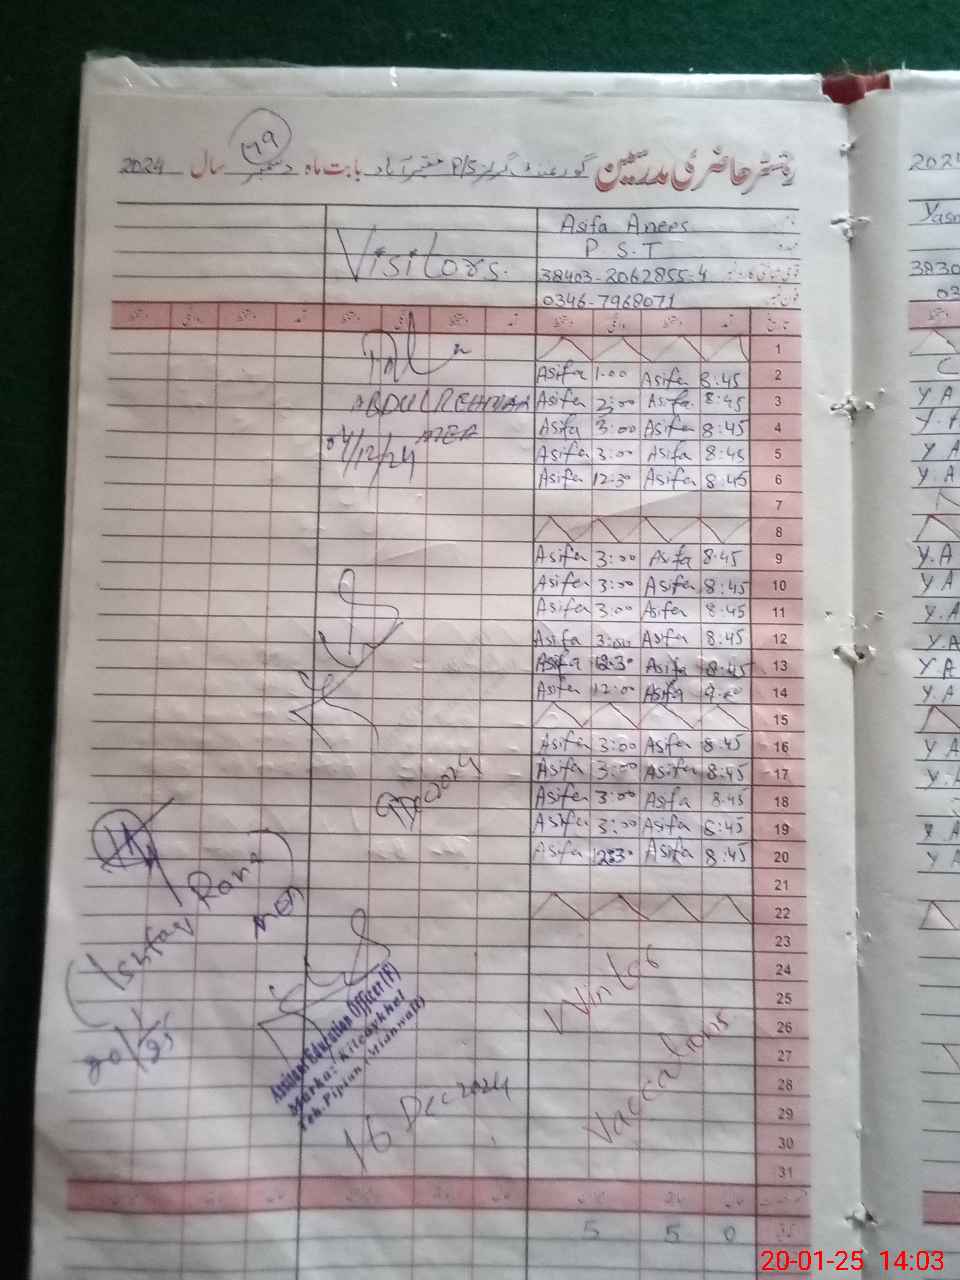 رجسٹر حاضری مدرسین گورنمنٹ گرلز P/S مظفر آباد بابت ماہ دسمبر سال 2024
49
Asifa Anees
P.S.T
Visitors.
38403-2062855-4
0346-7968071
1
Asifa 1:00 Asifa 8:45 2
ABDUL REHMAN Asifa 2:00 Asifa 8:45 3
AEO Asifa 3:00 Asifa 8:45 4
04/12/24 Asifa 3:00 Asifa 8:45 5
Asifa 12:30 Asifa 8:45 6
7
8
Asifa 3:00 Asifa 8:45 9
Asifa 3:00 Asifa 8:45 10
Asifa 3:00 Asifa 8:45 11
Asifa 3:00 Asifa 8:45 12
Asifa 12:30 Asifa 8:45 13
Asifa 12:00 Asifa 9:00 14
15
Asifa 3:00 Asifa 8:45 16
Asifa 3:00 Asifa 8:45 17
Asifa 3:00 Asifa 8:45 18
Asifa 3:00 Asifa 8:45 19
Asifa 12:30 Asifa 8:45 20
21
22
23
24
25
26
27
28
29
30
31
Dec 2024
Winter
Vaccations
Ishfaq Rana
20/1/25
Assistant Education Officer (F)
Markaz Kiloaykhel
Teh. Piplan (Mianwali)
16 Dec 2024
5 5 0
2024
Y A
Y A
Y A
Y.A
Y.A
Y A
Y.A
Y.A
Y A
Y.A
Y A
Y A
20-01-25 14:03